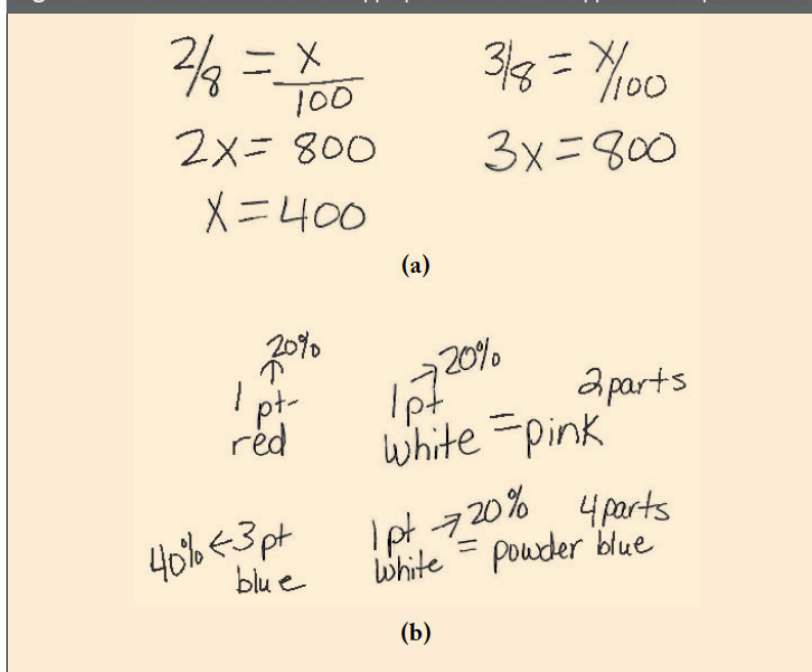 2/8 = x/100
3/8 = x/100
2x = 800
3x = 800
x = 400
(a)
20%
↑
1 pt-
red
1 pt → 20%
white = pink
2 parts
40% ← 3 pt
blue
1 pt → 20%
white = powder blue
4 parts
(b)